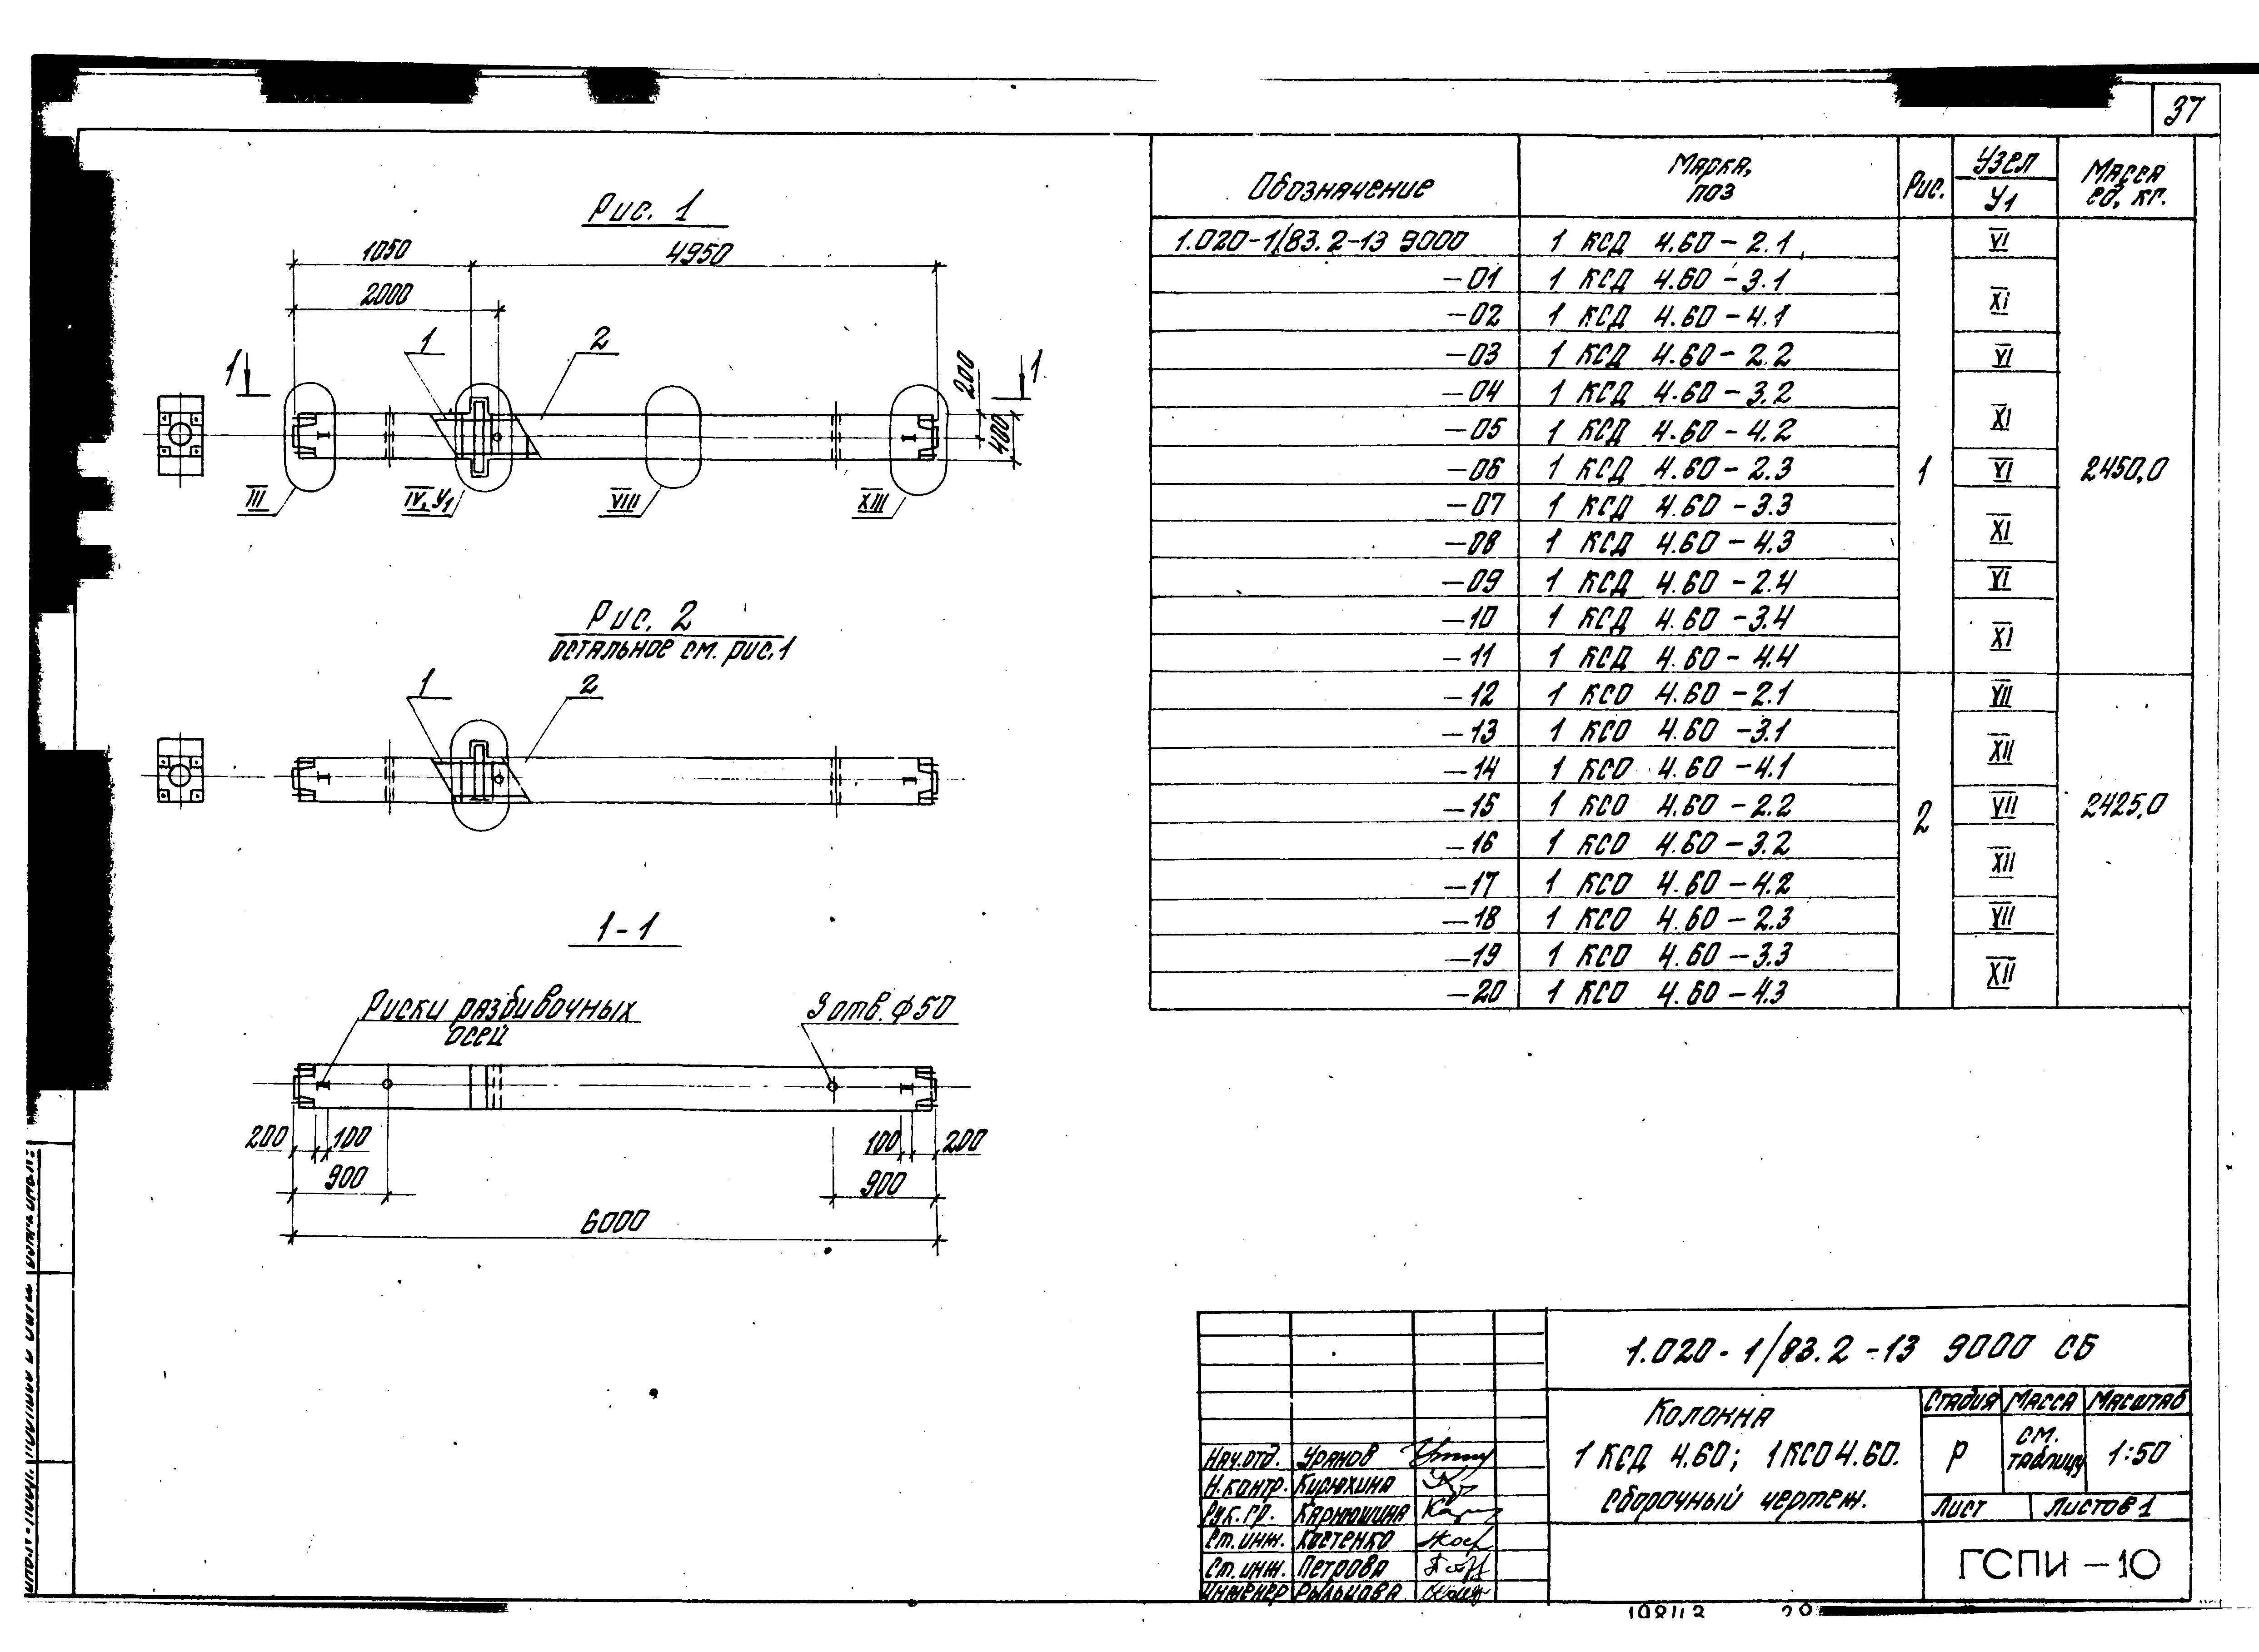 37
Рис. 1
1050
4950
2000
1
2
200
400
1
1
III
IV, У1
VIII
XIII
Рис. 2
остальное см. рис.1
1
2
1-1
Риски разбивочных
осей
3 отв. ф50
200
100
100
200
900
900
6000
Обозначение
Марка,
поз
Рис.
Узел
У1
Масса
ед, кг.
1.020-1/83.2-13 9000 1 КСД 4.60-2.1 VI
-01 1 КСД 4.60-3.1
XI
-02 1 КСД 4.60-4.1
-03 1 КСД 4.60-2.2 VI
-04 1 КСД 4.60-3.2
XI
-05 1 КСД 4.60-4.2
-06 1 КСД 4.60-2.3 1 VI 2450,0
-07 1 КСД 4.60-3.3
XI
-08 1 КСД 4.60-4.3
-09 1 КСД 4.60-2.4 VI
-10 1 КСД 4.60-3.4
XI
-11 1 КСД 4.60-4.4
-12 1 КСО 4.60-2.1 VII
-13 1 КСО 4.60-3.1
XII
-14 1 КСО 4.60-4.1
-15 1 КСО 4.60-2.2 2 VII 2425,0
-16 1 КСО 4.60-3.2
XII
-17 1 КСО 4.60-4.2
-18 1 КСО 4.60-2.3 VII
-19 1 КСО 4.60-3.3
XII
-20 1 КСО 4.60-4.3
1.020-1/83.2-13 9000 СБ
Колонна
1 КСД 4.60; 1КСО4.60.
Сборочный чертеж.
Стадия Масса Масштаб
Р
см.
таблицу
1:50
Лист Листов 1
ГСПИ-10
Нач.отд. Уранов
Н.контр. Кирюхина
Рук.гр. Карнюшина
Ст.инж. Костенко
Ст.инж. Петрова
Инженер Рыльцова